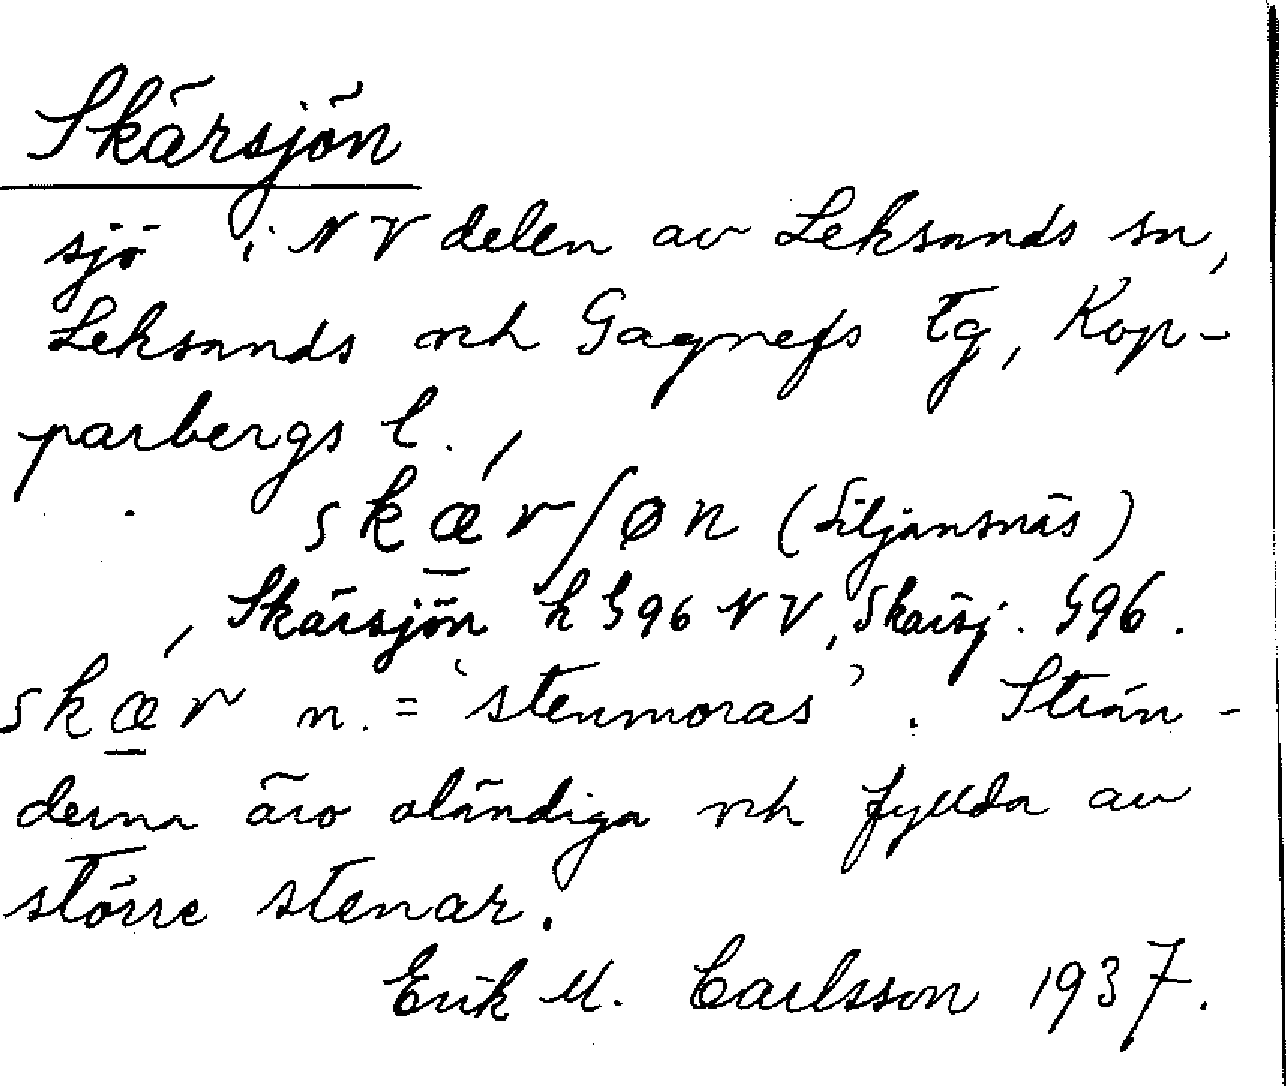 Skärsjön
sjö i NV delen av Leksands sn,
Leksands och Gagnefs tg, Kop-
parbergs l.,
skæ̲r/øn (Siljansnäs)
, Skärsjön k §96 NV, Skärsj. §96.
skæ̲r n. = 'stenmoras'. Strän-
derna äro oländiga och fyllda av
större stenar.
Erik M. Carlsson 1937.